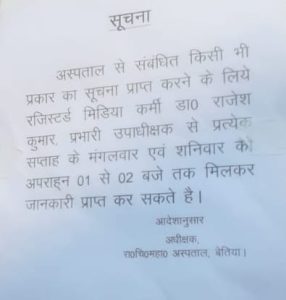 सूचना
अस्पताल से संबंधित किसी भी
प्रकार का सूचना प्राप्त करने के लिये
रजिस्टर्ड मिडिया कर्मी डा0 राजेश
कुमार, प्रभारी उपाधीक्षक से प्रत्येक
सप्ताह के मंगलवार एवं शनिवार को
अपराह्न 01 से 02 बजे तक मिलकर
जानकारी प्राप्त कर सकते है।
आदेशानुसार
अधीक्षक,
रा0चि0महा0 अस्पताल, बेतिया।